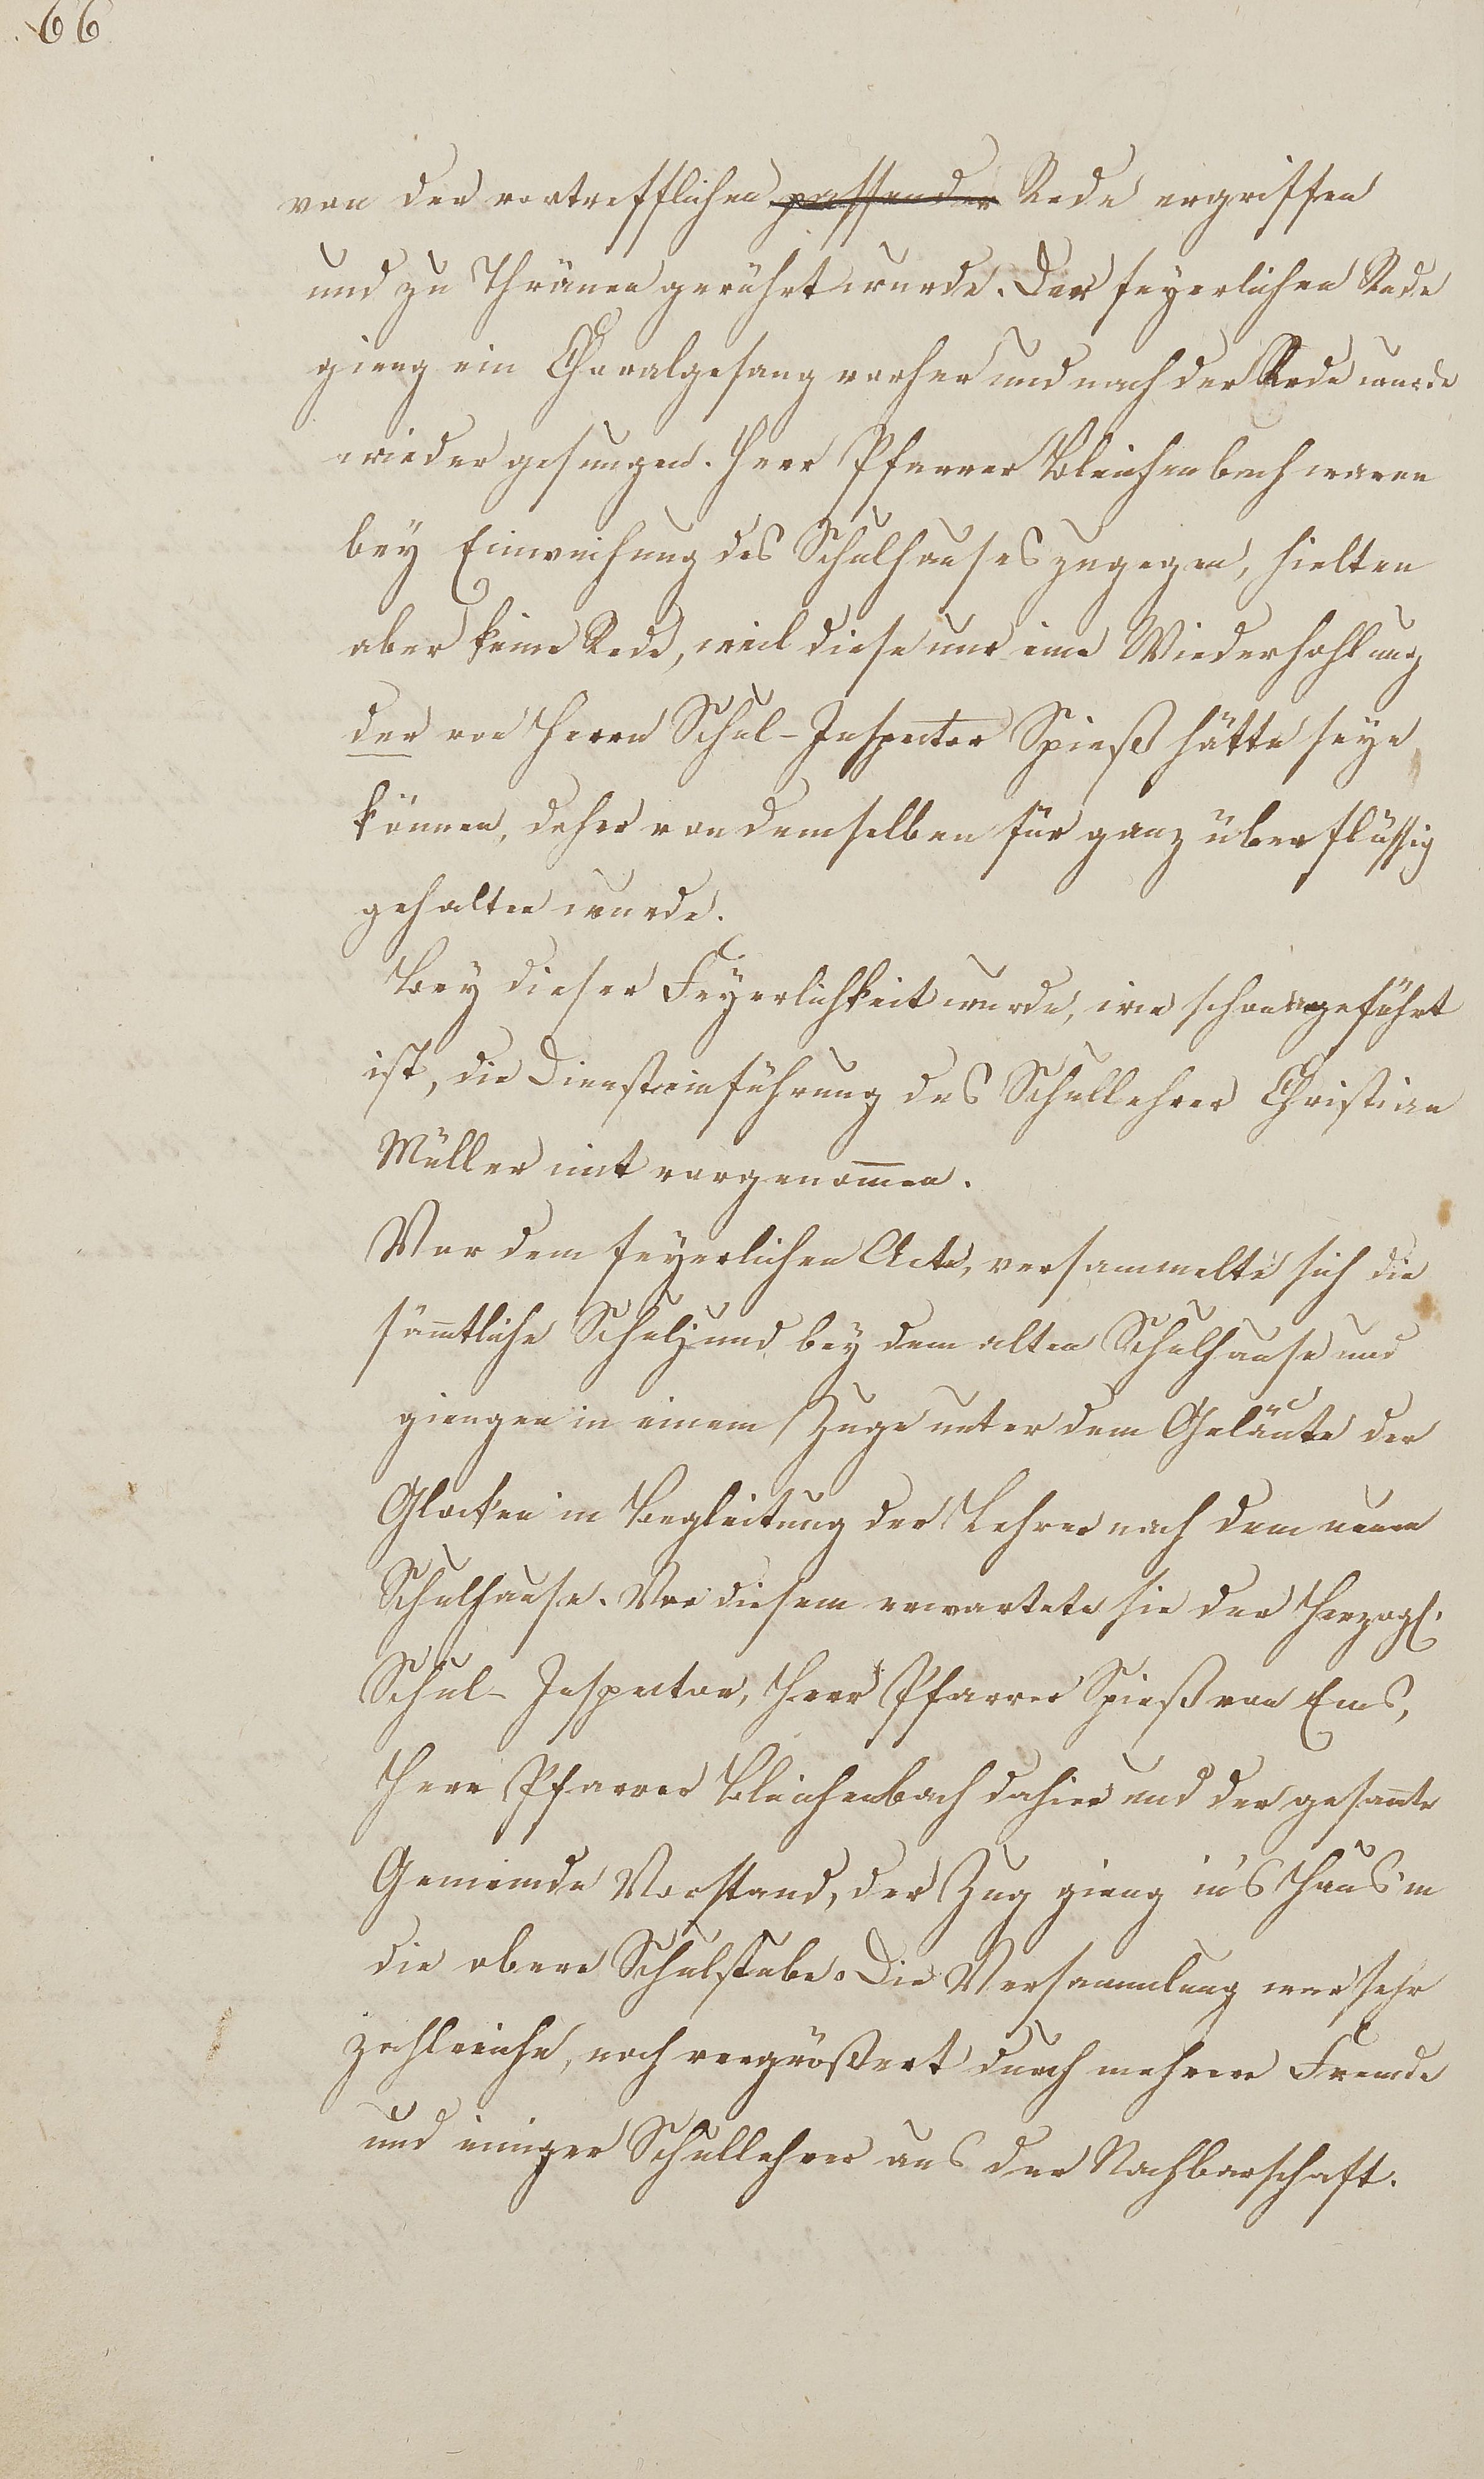 66
von der vortrefflichen passender Rede ergriffen
und zu Thränen gerührt wurde. Der feyerlichen Rede
gieng ein Choralgesang vorher und nach der Rede wurde
wieder gesungen. Herr Pfarrer Bleichenbach waren
bey Einweihung des Schulhauses zugegen, hielten
aber keine Rede, weil diese nur eine Wiederhohlung
der von Herrn Schul-Inspector Spieß hätte seyn
können, daher von demselben für ganz überflüssig
gehalten wurde.
Bey dieser Feyerlichkeit wurde, wie schon angeführt
ist, die Diensteinführung des Schullehrer Christian
Müller mit vorgenom̅en.
Vor dem feyerlichen Acte, versammelte sich die
säm̅tliche Schuljugend bey dem alten Schulhause und
giengen in einem Zuge unter dem Geläute der
Glocken in Begleitung der Lehrer nach dem neuen
Schulhause. Vor diesem erwartete sie der Herzogl.
Schul-Inspector, Herr Pfarrer Spieß von Ems,
Herr Pfarrer Bleichenbach dahier und der gesam̅te
Gemeinde Vorstand, der Zug gieng in's Haus in
die obere Schulstube. Die Versammlung war sehr
zahlreiche, noch vergrößert durch mehrere Fremde
und einiger Schullehrer aus der Nachbarschaft.